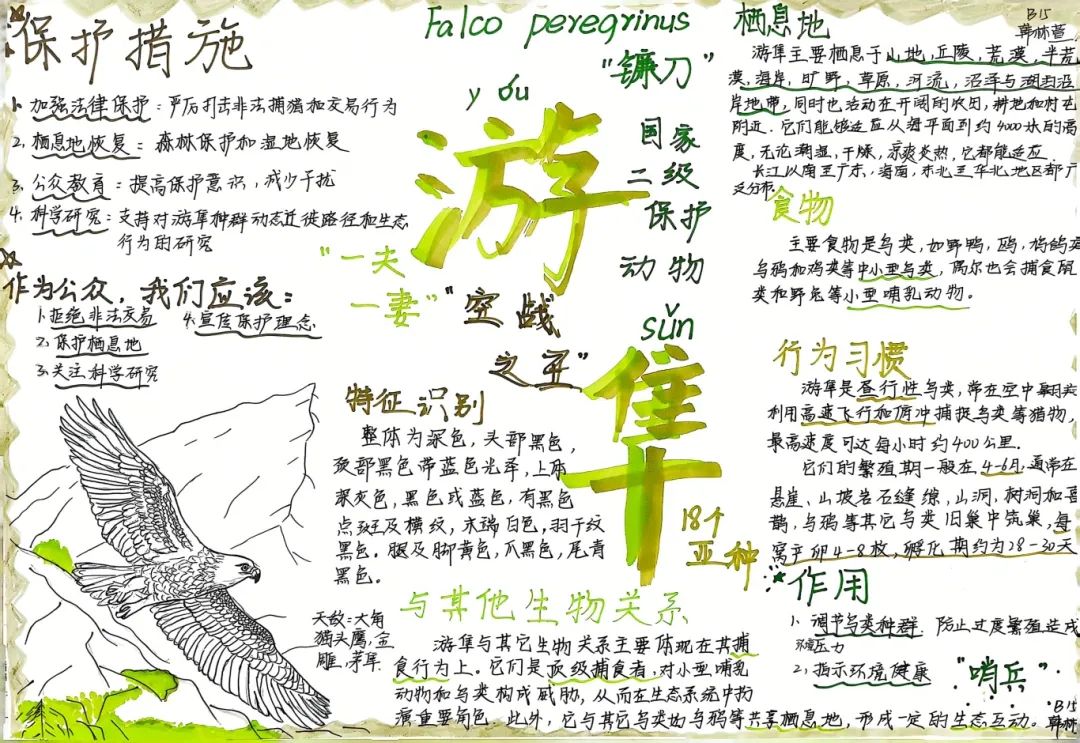 保护措施
1. 加强法律保护：严厉打击非法捕猎和交易行为
2. 栖息地恢复：森林保护和湿地恢复
3. 公众教育：提高保护意识，减少干扰
4. 科学研究：支持对游隼种群动态迁徙路径和生态
行为的研究
作为公众，我们应该：
1.拒绝非法交易
2.保护栖息地
3.关注科学研究
4.宣传保护理念
Falco peregrinus
"镰刀"
yóu
游
国家
二级
保护
动物
"一夫
一妻"
"空战
之王"
sǔn
隼
18个
亚种
特征识别
整体为深色，头部黑色，
颈部黑色带蓝色光泽，上体
深灰色，黑色或蓝色，有黑色
点斑及横纹，末端白色，羽干纹
黑色。腿及脚黄色，爪黑色，尾青
黑色。
天敌：大角
猫头鹰，金
雕，矛隼
与其他生物关系
游隼与其它生物关系主要体现在其捕
食行为上。它们是顶级捕食者，对小型哺乳
动物和鸟类构成威胁，从而在生态系统中扮
演重要角色。此外，它与其它鸟类如乌鸦等共享栖息地，形成一定的生态互动。
栖息地
B15
韩林萱
游隼主要栖息于山地，丘陵，荒漠，半荒
漠，海岸，旷野，草原，河流，沼泽与湖泊沿
岸地带，同时也活动在开阔的农田，耕地和村屯
附近。它们能够适应从海平面到约4000米的高
度，无论潮湿，干燥，凉爽炎热，它都能适应．
长江以南至广东，海南，东北至华北地区都广
泛分布。
食物
主要食物是鸟类，如野鸭，鸥，鸠鸽类
乌鸦和鸡类等中小型鸟类，偶尔也会捕食鼠
类和野兔等小型哺乳动物。
行为习惯
游隼是昼行性鸟类，常在空中翱翔
利用高速飞行和俯冲捕捉鸟类等猎物，
最高速度可达每小时约400公里．
它们的繁殖期一般在4-6月，通常在
悬崖、山坡岩石缝隙，山洞，树洞和喜
鹊，乌鸦等其它鸟类旧巢中筑巢，每
窝产卵4-8枚，孵化期约为28-30天
作用
1、调节鸟类种群 防止过度繁殖造成
环境压力
2、指示环境健康
"哨兵"
B15
韩林